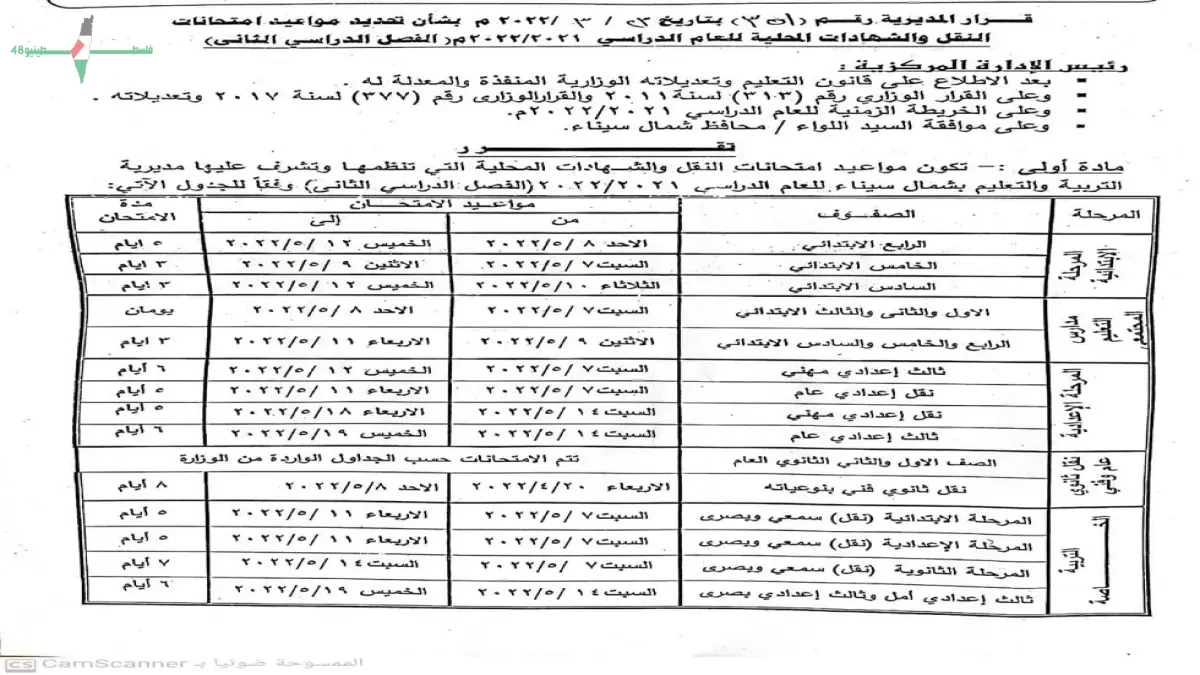 فلسطينيو48
قرار المديرية رقم (٣٥١) بتاريخ ٢٣ / ٣ /٢٠٢٢ م بشأن تحديد مواعيد امتحانات
النقل والشهادات المحلية للعام الدراسي ٢٠٢٢/٢٠٢١م( الفصل الدراسي الثانى)
رئيس الإدارة المركزية :
▪ بعد الاطلاع على قانون التعليم وتعديلاته الوزارية المنفذة والمعدلة له .
▪ وعلى القرار الوزاري رقم (٣١٣) لسنة ٢٠١١ والقرارالوزارى رقم (٣٧٧) لسنة ٢٠١٧ وتعديلاته .
▪ وعلى الخريطة الزمنية للعام الدراسي ٢٠٢٢/٢٠٢١م.
▪ وعلى موافقة السيد اللواء / محافظ شمال سيناء.
تقرر
مادة أولى :– تكون مواعيد امتحانات النقل والشهادات المحلية التي تنظمها وتشرف عليها مديرية
التربية والتعليم بشمال سيناء للعام الدراسي ٢٠٢٢/٢٠٢١(الفصل الدراسي الثانى) وفقاً للجدول الآتي:
المرحلة الصفوف مواعيد الامتحان مدة الامتحان
من إلى
المرحلة الابتدائية
الرابع الابتدائي الاحد ٨ /٢٠٢٢/٥ الخميس ١٢ /٢٠٢٢/٥ ٥ ايام
الخامس الابتدائي السبت ٧ /٢٠٢٢/٥ الاثنين ٩ /٢٠٢٢/٥ ٣ ايام
السادس الابتدائي الثلاثاء ٢٠٢٢/٥/١٠ الخميس ١٢ /٢٠٢٢/٥ ٣ ايام
مدارس التعليم المجتمعي
الاول والثانى والثالث الابتدائي السبت ٧ /٢٠٢٢/٥ الاحد ٨ /٢٠٢٢/٥ يومان
الرابع والخامس والسادس الابتدائي الاثنين ٩ /٢٠٢٢/٥ الاربعاء ١١ /٢٠٢٢/٥ ٣ ايام
المرحلة الإعدادية
ثالث إعدادي مهني السبت ٧ /٢٠٢٢/٥ الخميس ١٢ /٢٠٢٢/٥ ٦ أيام
نقل إعدادي عام السبت ٧ /٢٠٢٢/٥ الاربعاء ١١ /٢٠٢٢/٥ ٥ أيام
نقل إعدادي مهني السبت ١٤ /٢٠٢٢/٥ الاربعاء ٢٠٢٢/٥/١٨ ٥ أيام
ثالث إعدادي عام السبت ١٤ /٢٠٢٢/٥ الخميس ٢٠٢٢/٥/١٩ ٦ أيام
نقل ثانوي عام وفني
الصف الاول والثاني الثانوي العام تتم الامتحانات حسب الجداول الواردة من الوزارة
نقل ثانوي فني بنوعياته الاربعاء ٢٠٢٢/٤/٢٠ الاحد ٢٠٢٢/٥/٨ ٨ أيام
التربية الخاصة
المرحلة الابتدائية (نقل) سمعي وبصرى السبت ٧ /٢٠٢٢/٥ الاربعاء ١١ /٢٠٢٢/٥ ٥ أيام
المرحلة الإعدادية (نقل) سمعي وبصرى السبت ٧ /٢٠٢٢/٥ الاربعاء ١١ /٢٠٢٢/٥ ٥ أيام
المرحلة الثانوية (نقل) سمعي وبصرى السبت ٧ /٢٠٢٢/٥ السبت ١٤ /٢٠٢٢/٥ ٧ أيام
ثالث إعدادي أمل وثالث إعدادي بصرى السبت ١٤ /٢٠٢٢/٥ الخميس ٢٠٢٢/٥/١٩ ٦ أيام
الممسوحة ضوئيا بـ CamScanner CS